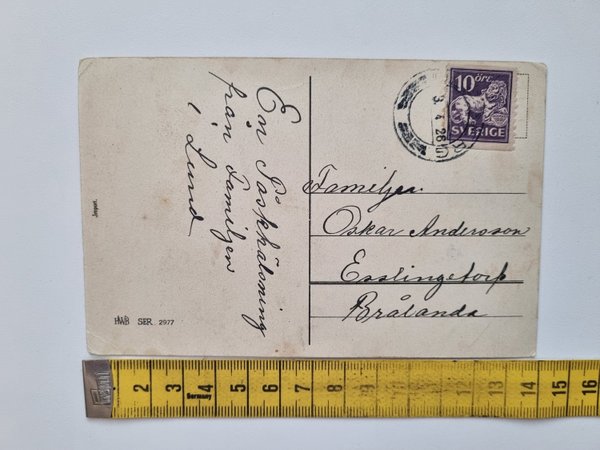 En Påskhälsning
från Familjen
i Lund
10 ÖRE
SVERIGE
3 4 26
Familjen
Oskar Anderson
Esslingetorp
Brålanda
Import.
HWB SER. 2977
1 2 3 4 5 6 7 8 9 10 11 12 13 14 15 16
Germany